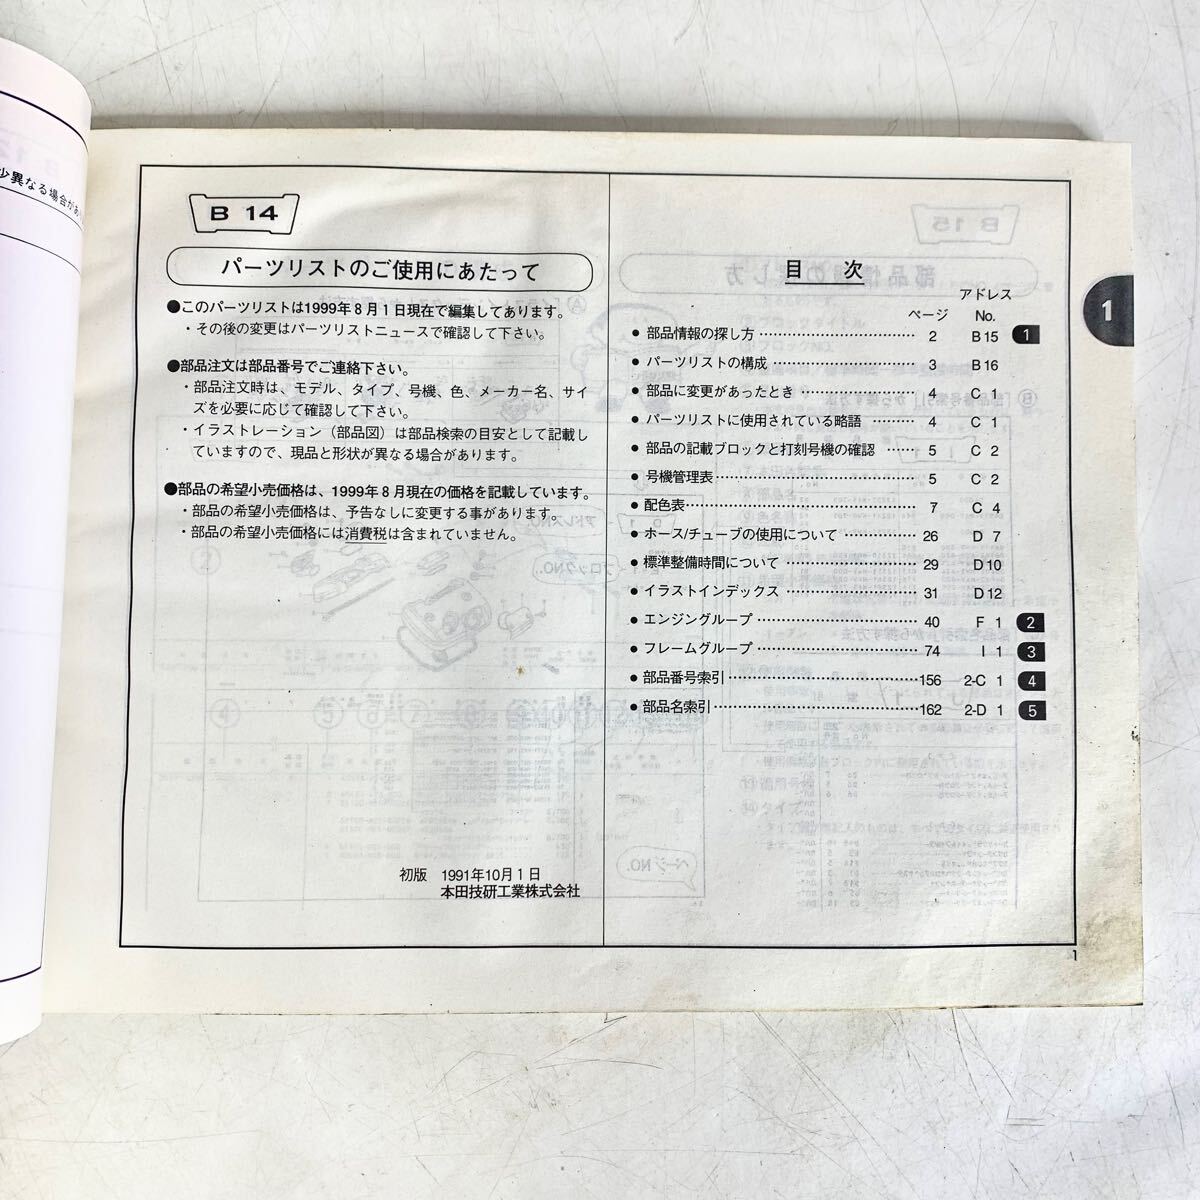 少異なる場合があ
B 14
パーツリストのご使用にあたって
●このパーツリストは1999年8月1日現在で編集してあります。
・その後の変更はパーツリストニュースで確認して下さい。
●部品注文は部品番号でご連絡下さい。
・部品注文時は、モデル、タイプ、号機、色、メーカー名、サイ
ズを必要に応じて確認して下さい。
・イラストレーション（部品図）は部品検索の目安として記載し
ていますので、現品と形状が異なる場合があります。
●部品の希望小売価格は、1999年8月現在の価格を記載しています。
・部品の希望小売価格は、予告なしに変更する事があります。
・部品の希望小売価格には消費税は含まれていません。
初版 1991年10月1日
本田技研工業株式会社
目 次
ページ アドレス No.
● 部品情報の探し方 2 B 15 1
● パーツリストの構成 3 B 16
● 部品に変更があったとき 4 C 1
● パーツリストに使用されている略語 4 C 1
● 部品の記載ブロックと打刻号機の確認 5 C 2
● 号機管理表 5 C 2
● 配色表 7 C 4
● ホース/チューブの使用について 26 D 7
● 標準整備時間について 29 D 10
● イラストインデックス 31 D 12
● エンジングループ 40 F 1 2
● フレームグループ 74 I 1 3
● 部品番号索引 156 2-C 1 4
● 部品名索引 162 2-D 1 5
1
1